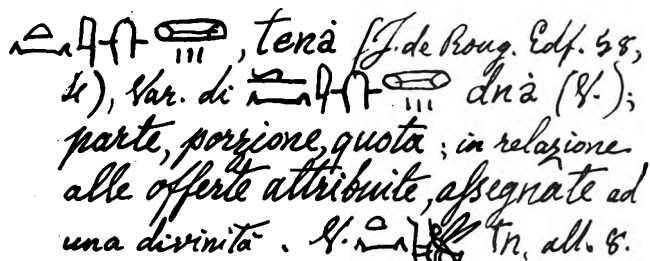 , tenà (J. de Roug. Edf. 58,
4), Var. di dnà (V.);
parte, porzione, quota; in relazione
alle offerte attribuite, assegnate ad
una divinità. V. tn, all. 8.